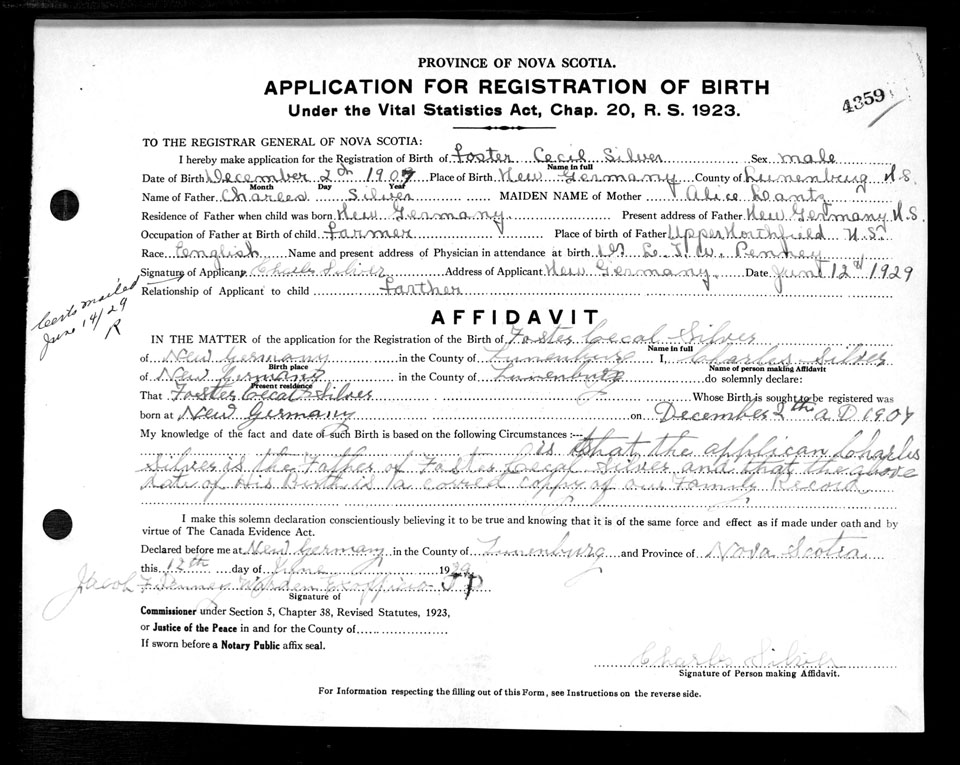 PROVINCE OF NOVA SCOTIA.
APPLICATION FOR REGISTRATION OF BIRTH
Under the Vital Statistics Act, Chap. 20, R. S. 1923.
4359
TO THE REGISTRAR GENERAL OF NOVA SCOTIA:
I hereby make application for the Registration of Birth of Foster Cecil Silver Sex male
Name in full
Date of Birth December 2th 1907 Place of Birth New Germany County of Lunenburg N.S.
Month Day Year
Name of Father Charles Silver MAIDEN NAME of Mother Alice Wantz
Residence of Father when child was born New Germany Present address of Father New Germany N.S.
Occupation of Father at Birth of child Farmer Place of Birth of Father Upper Northfield N.S.
Race English Name and present address of Physician in attendance at birth Dr Penney
Signature of Applicant Charles Silver Address of Applicant New Germany Date June 12th 1929
Relationship of Applicant to child Farther
Certs mailed
June 14/29
R
AFFIDAVIT
IN THE MATTER of the application for the Registration of the Birth of Foster Cecal Silver
Name in full
of New Germany in the County of Lunenburg I, Charles Silver
Birth place Name of person making Affidavit
of New Germany in the County of Lunenburg do solemnly declare:
Present residence
That Foster Cecal Silver Whose Birth is sought to be registered was
born at New Germany on December 2th A.D. 1907
My knowledge of the fact and date of such Birth is based on the following Circumstances :--- is that the applican Charles
Silver is the Father of Foster Cecal Silver and that the above
date of His Birth is a coired copy of our Family Record
I make this solemn declaration conscientiously believing it to be true and knowing that it is of the same force and effect as if made under oath and by
virtue of The Canada Evidence Act.
Declared before me at New Germany in the County of Lunenburg and Province of Nova Scotia
this 12th day of June 1929
Jacob F Penney Warden Exofficio J P
Signature of
Commissioner under Section 5, Chapter 38, Revised Statutes, 1923,
or Justice of the Peace in and for the County of
If sworn before a Notary Public affix seal.
Charles Silver
Signature of Person making Affidavit.
For Information respecting the filling out of this Form, see Instructions on the reverse side.